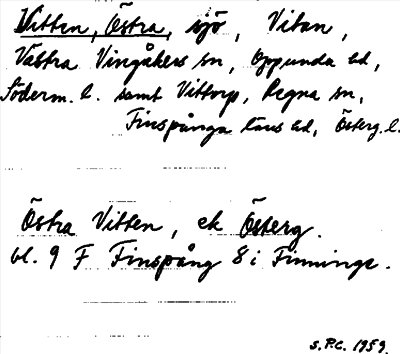 Vitten, Östra, sjö, Vitan,
Västra Vingåkers sn, Oppunda hd,
Söderm. l. samt Vittorp, Regna sn,
Finspånga läns hd, Österg. l.
Östra Vitten, ek Österg.
bl. 9 F Finspång 8 i Finninge.
S.P.C. 1959.